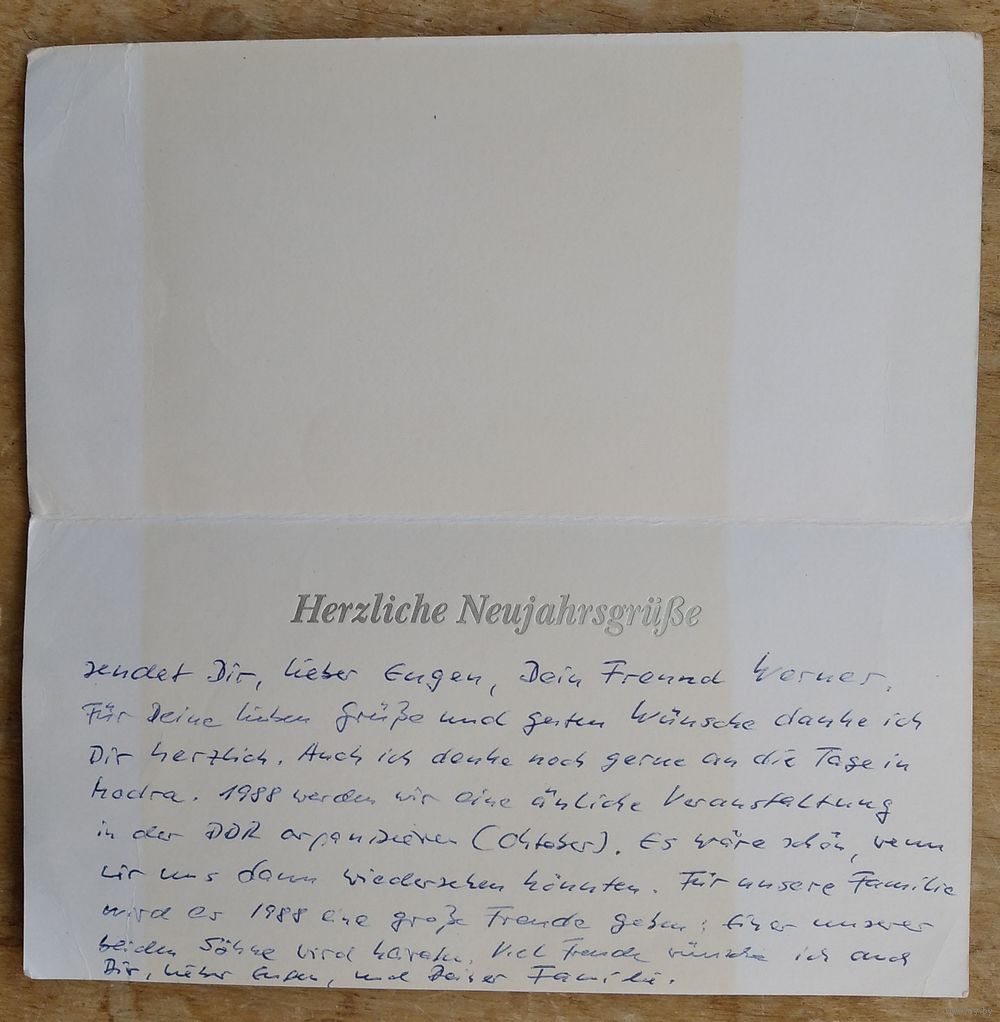 Herzliche Neujahrsgrüße
sendet Dir, lieber Eugen, Dein Freund Werner.
Für Deine lieben Grüße und guten Wünsche danke ich
Dir herzlich. Auch ich denke noch gerne an die Tage in
Modra. 1988 werden wir eine änliche Veranstaltung
in der DDR organisieren (Oktober). Es wäre schön, wenn
wir uns dann wiedersehen könnten. Für unsere Familie
wird es 1988 eine große Freude geben: Einer unserer
beiden Söhne wird heiraten. Viel Freude wünsche ich auch
Dir, lieber Eugen, und Deiner Familie.